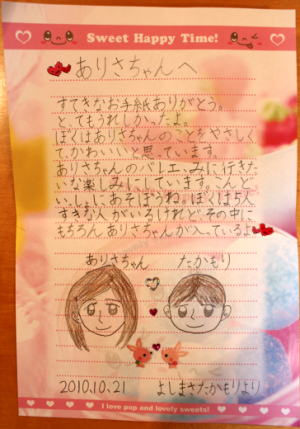 Sweet Happy Time!
ありさちゃんへ
すてきなお手紙ありがとう。
とってもうれしかったよ。
ぼくはありさちゃんのことをやさしく
て、かわいいと思っています。
ありさちゃんのバレエ、みに行きた
いな楽しみにしています。こんど
いっしょにあそぼうね。ぼくは5人
すきな人がいるけれど、その中に
もちろんありさちゃんが入っているよ
ありさちゃん
たかもり
2010.10.21
よしまさたかもりより
I love pop and lovely sweets!